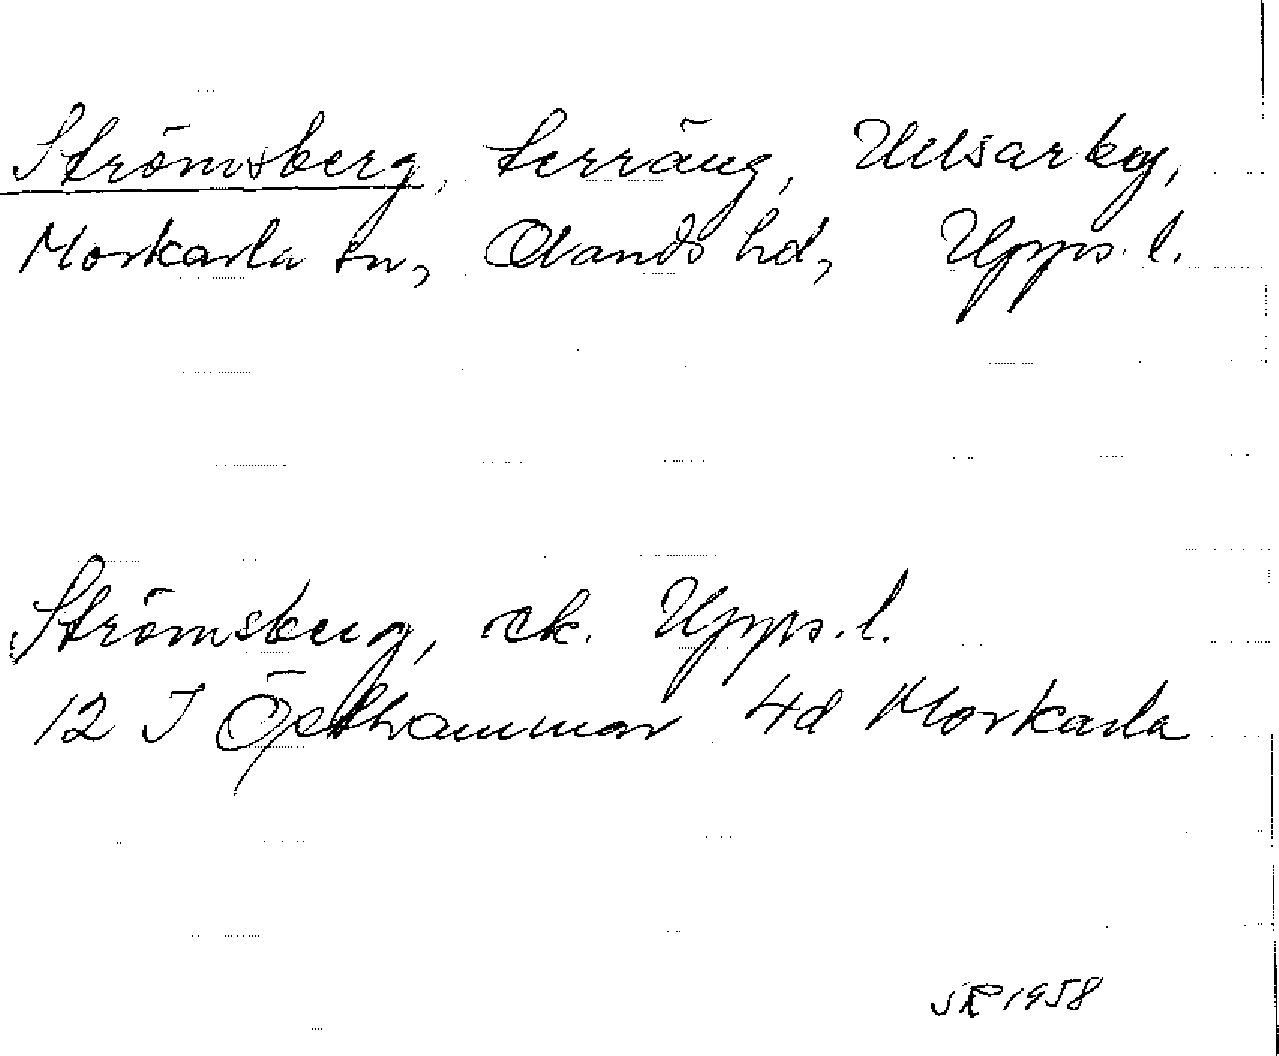 Strömsberg, terräng, Uelsarby,
Morkarla sn, Olands hd, Upps. l.
Strömsberg, ek. Upps. l.
12 I Östhammar 4d Morkarla
SR 1958